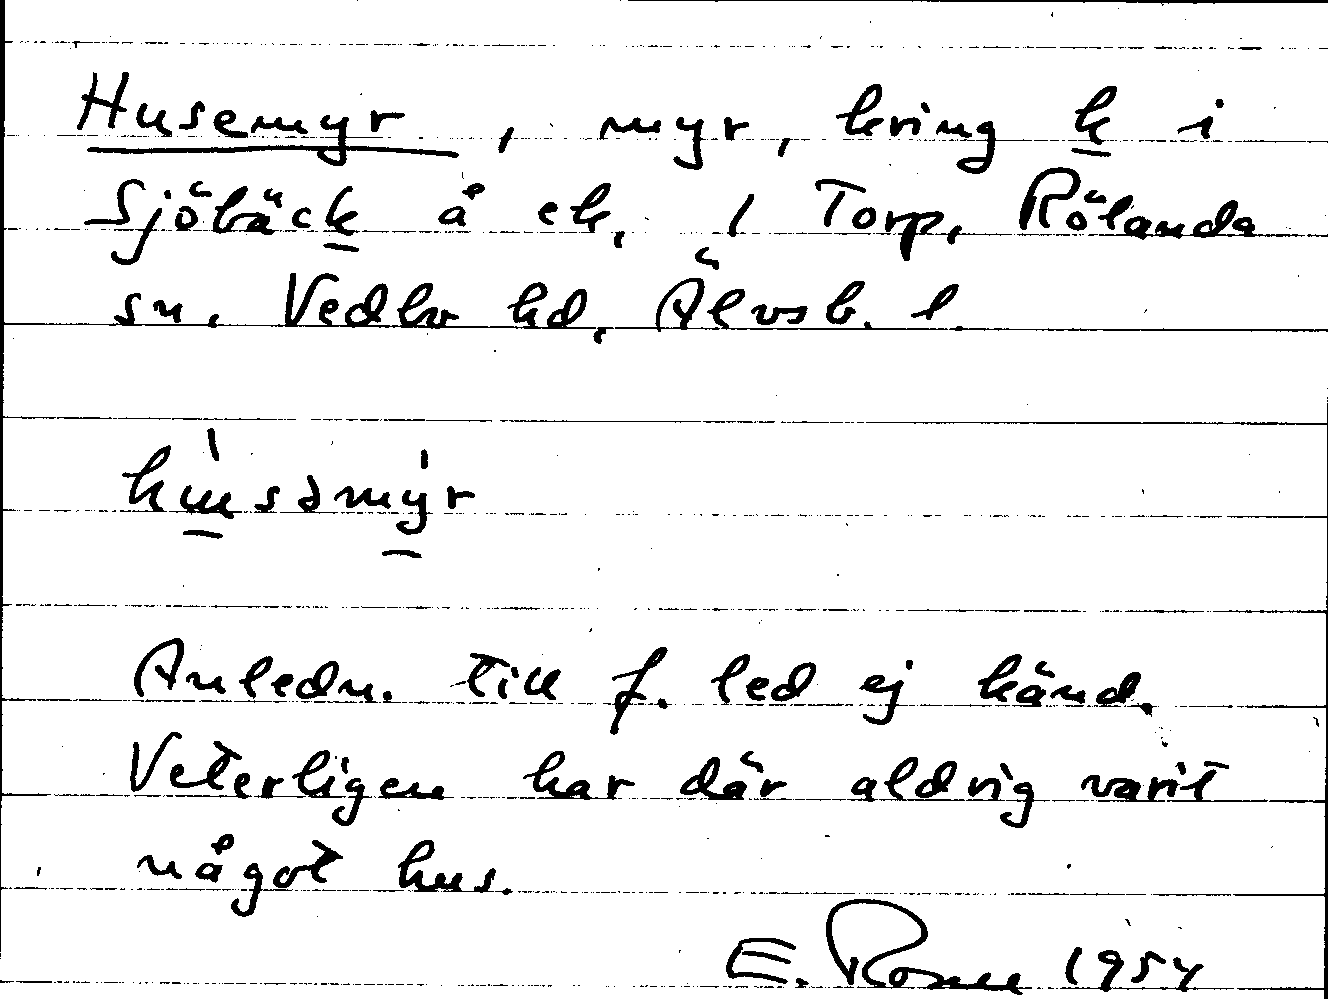 Husemyr, myr, kring k i
Sjöbäck å ek. 1 Torp, Rölanda
sn. Vedbo hd, Älvsb. l.
hùsəmýr
Anledn. till f. led ej känd.
Veterligen har där aldrig varit
något hus.
E. Rosell 1954